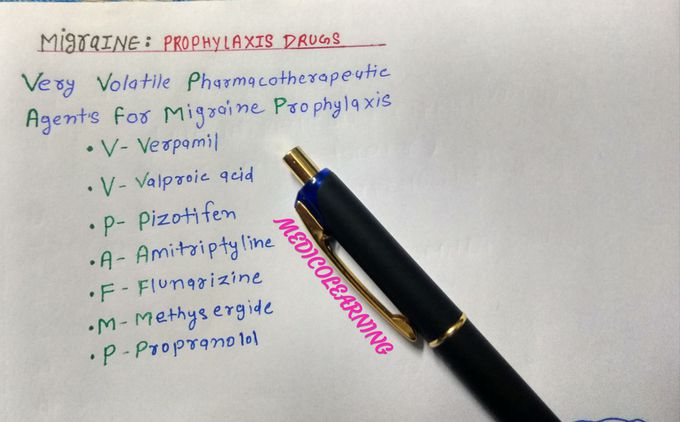 MigRAINE: PROPHYLAXIS DRUGS
Very Volatile Pharmacotherapeutic
Agent's for Migraine Prophylaxis
• V- Verpamil
• V- Valproic acid
• P- Pizotifen
• A- Amitriptyline
• F- Flunarizine
• M- Methysergide
• P- Propranolol
MEDICOLEARNING